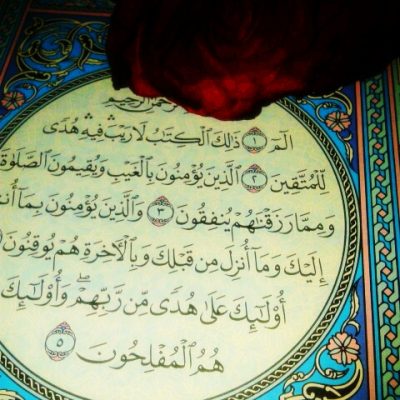 الرَّحِيمِ
الٓمٓ ١ ذَٰلِكَ ٱلْكِتَٰبُ لَا رَيْبَ ۛ فِيهِ ۛ هُدًى
لِّلْمُتَّقِينَ ٢ ٱلَّذِينَ يُؤْمِنُونَ بِٱلْغَيْبِ وَيُقِيمُونَ ٱلصَّلَوٰةَ
وَمِمَّا رَزَقْنَٰهُمْ يُنفِقُونَ ٣ وَٱلَّذِينَ يُؤْمِنُونَ بِمَآ أُن
إِلَيْكَ وَمَآ أُنزِلَ مِن قَبْلِكَ وَبِٱلْءَاخِرَةِ هُمْ يُوقِنُونَ
أُو۟لَٰٓئِكَ عَلَىٰ هُدًى مِّن رَّبِّهِمْ ۖ وَأُو۟لَٰٓئِكَ
هُمُ ٱلْمُفْلِحُونَ ٥